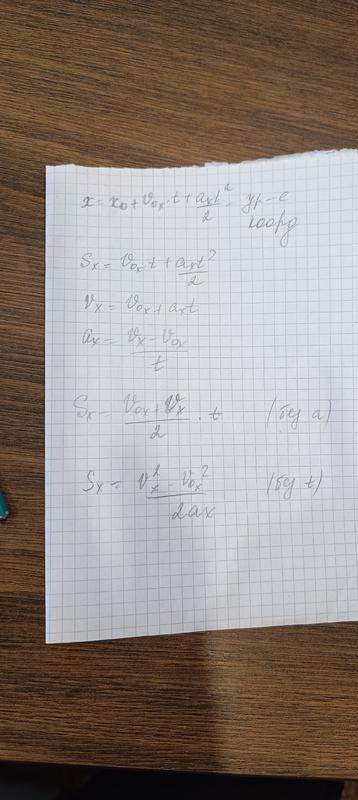 x = x₀ + v₀ₓ · t + aₓt²/2 - ур-е
коорд
Sₓ = v₀ₓ · t + aₓt²/2
vₓ = v₀ₓ + aₓt
aₓ = (vₓ - v₀ₓ)/t
Sₓ = (v₀ₓ + vₓ)/2 · t (без a)
Sₓ = (vₓ² - v₀ₓ²)/2aₓ (без t)